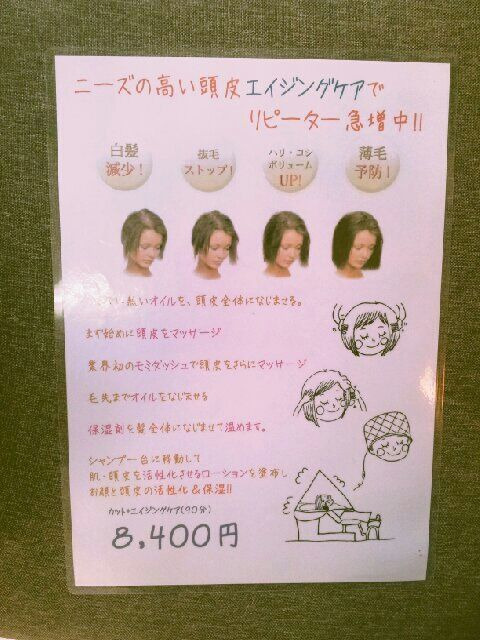 ニーズの高い頭皮エイジングケアで
リピーター急増中!!
白髪
減少!
抜毛
ストップ!
ハリ・コシ
ボリューム
UP!
薄毛
予防!
熱いオイルを、頭皮全体になじませる。
まず始めに頭皮をマッサージ
業界初のモミダッシュで頭皮をさらにマッサージ
毛先までオイルをなじませる
保湿剤を髪全体になじませて温めます。
シャンプー台に移動して
肌・頭皮を活性化させるローションを塗布し
お顔と頭皮の活性化&保湿!!
カット+エイジングケア(90分)
8,400円